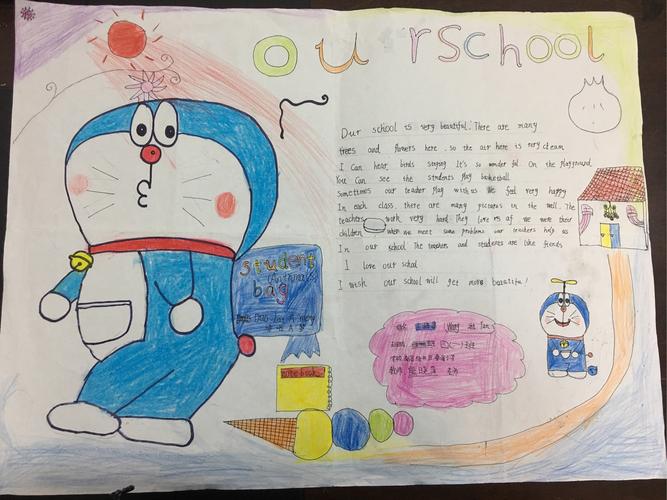 our school
Our school is very beautiful. There are many
trees and flowers here. so the air here is very clean
I Can hear birds singing It's so wonder ful. On the playground,
You Can see the students play basketball
Sometimes our teacher play with us We feel very happy
In each class, there are many pictures in the wall. The
teachers work very hard. They love us as we were their
children. when we meet some problems our teachers help us
In our school The teachers and students are like fiends
I love our school
I wish our school will get more beautiful!
student
(Autumn)
bag
notebook